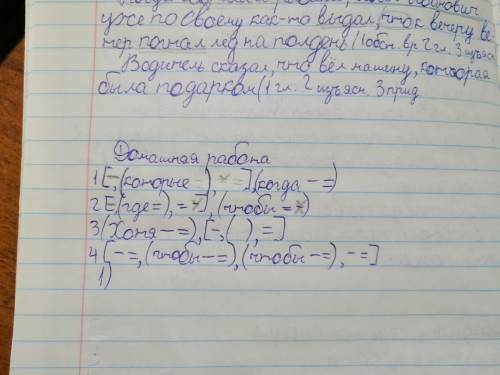 уже по своему как-то выдал, что к вечеру ве
тер погнал лёд на полдень (1 обст. вр. 2 гл. 3 изъясн
Водитель сказал, что вёл машину, которая
была подарком (1 гл. 2 изъясн. 3 прид.
Домашная работа
1 [-, (которые =), × =], (когда - =)
2 [(где =), = ×], (чтобы = ×)
3 (Хотя - =), [-, ( ), =]
4 [- =, (чтобы - =), (чтобы - =), - =]
1)